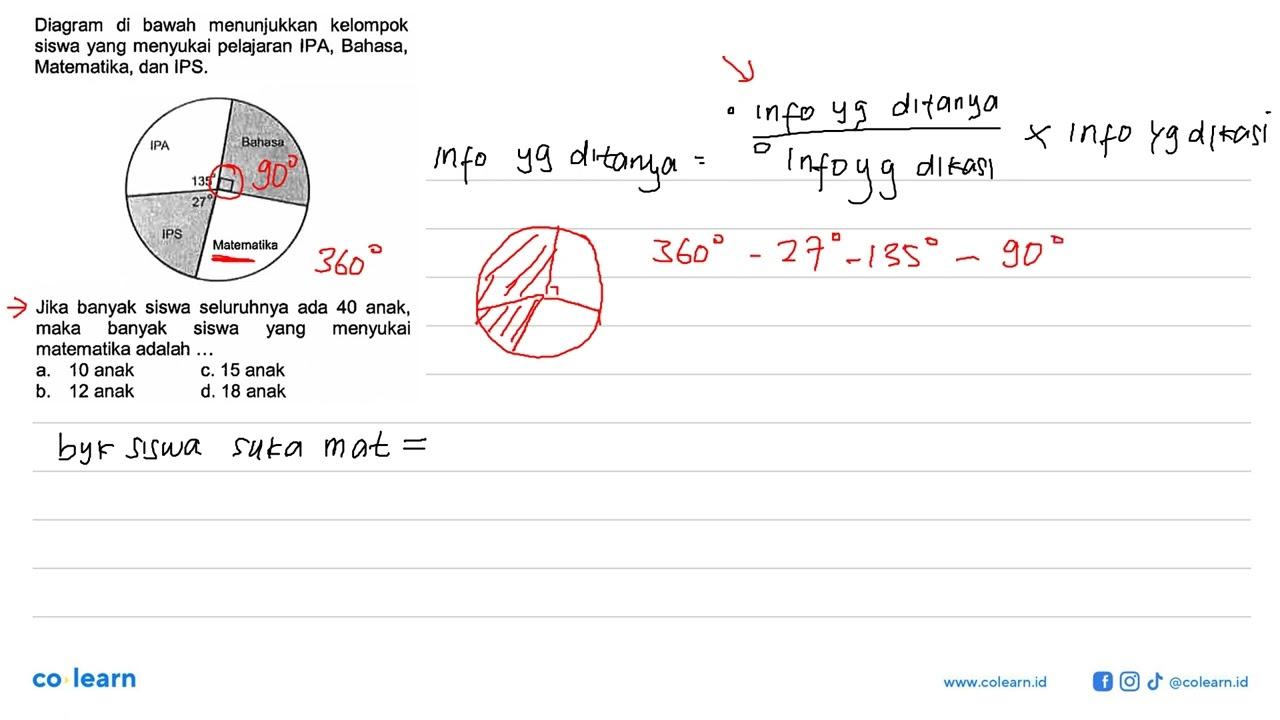 Diagram di bawah menunjukkan kelompok
siswa yang menyukai pelajaran IPA, Bahasa,
Matematika, dan IPS.
IPA
Bahasa
135°
90°
27°
IPS
Matematika
360°
Jika banyak siswa seluruhnya ada 40 anak,
maka banyak siswa yang menyukai
matematika adalah ...
a. 10 anak c. 15 anak
b. 12 anak d. 18 anak
info yg ditanya = info yg ditanya / info yg dikasi × info yg dikasi
360° - 27° - 135° - 90°
byk siswa suka mat =
co learn
www.colearn.id
@colearn.id